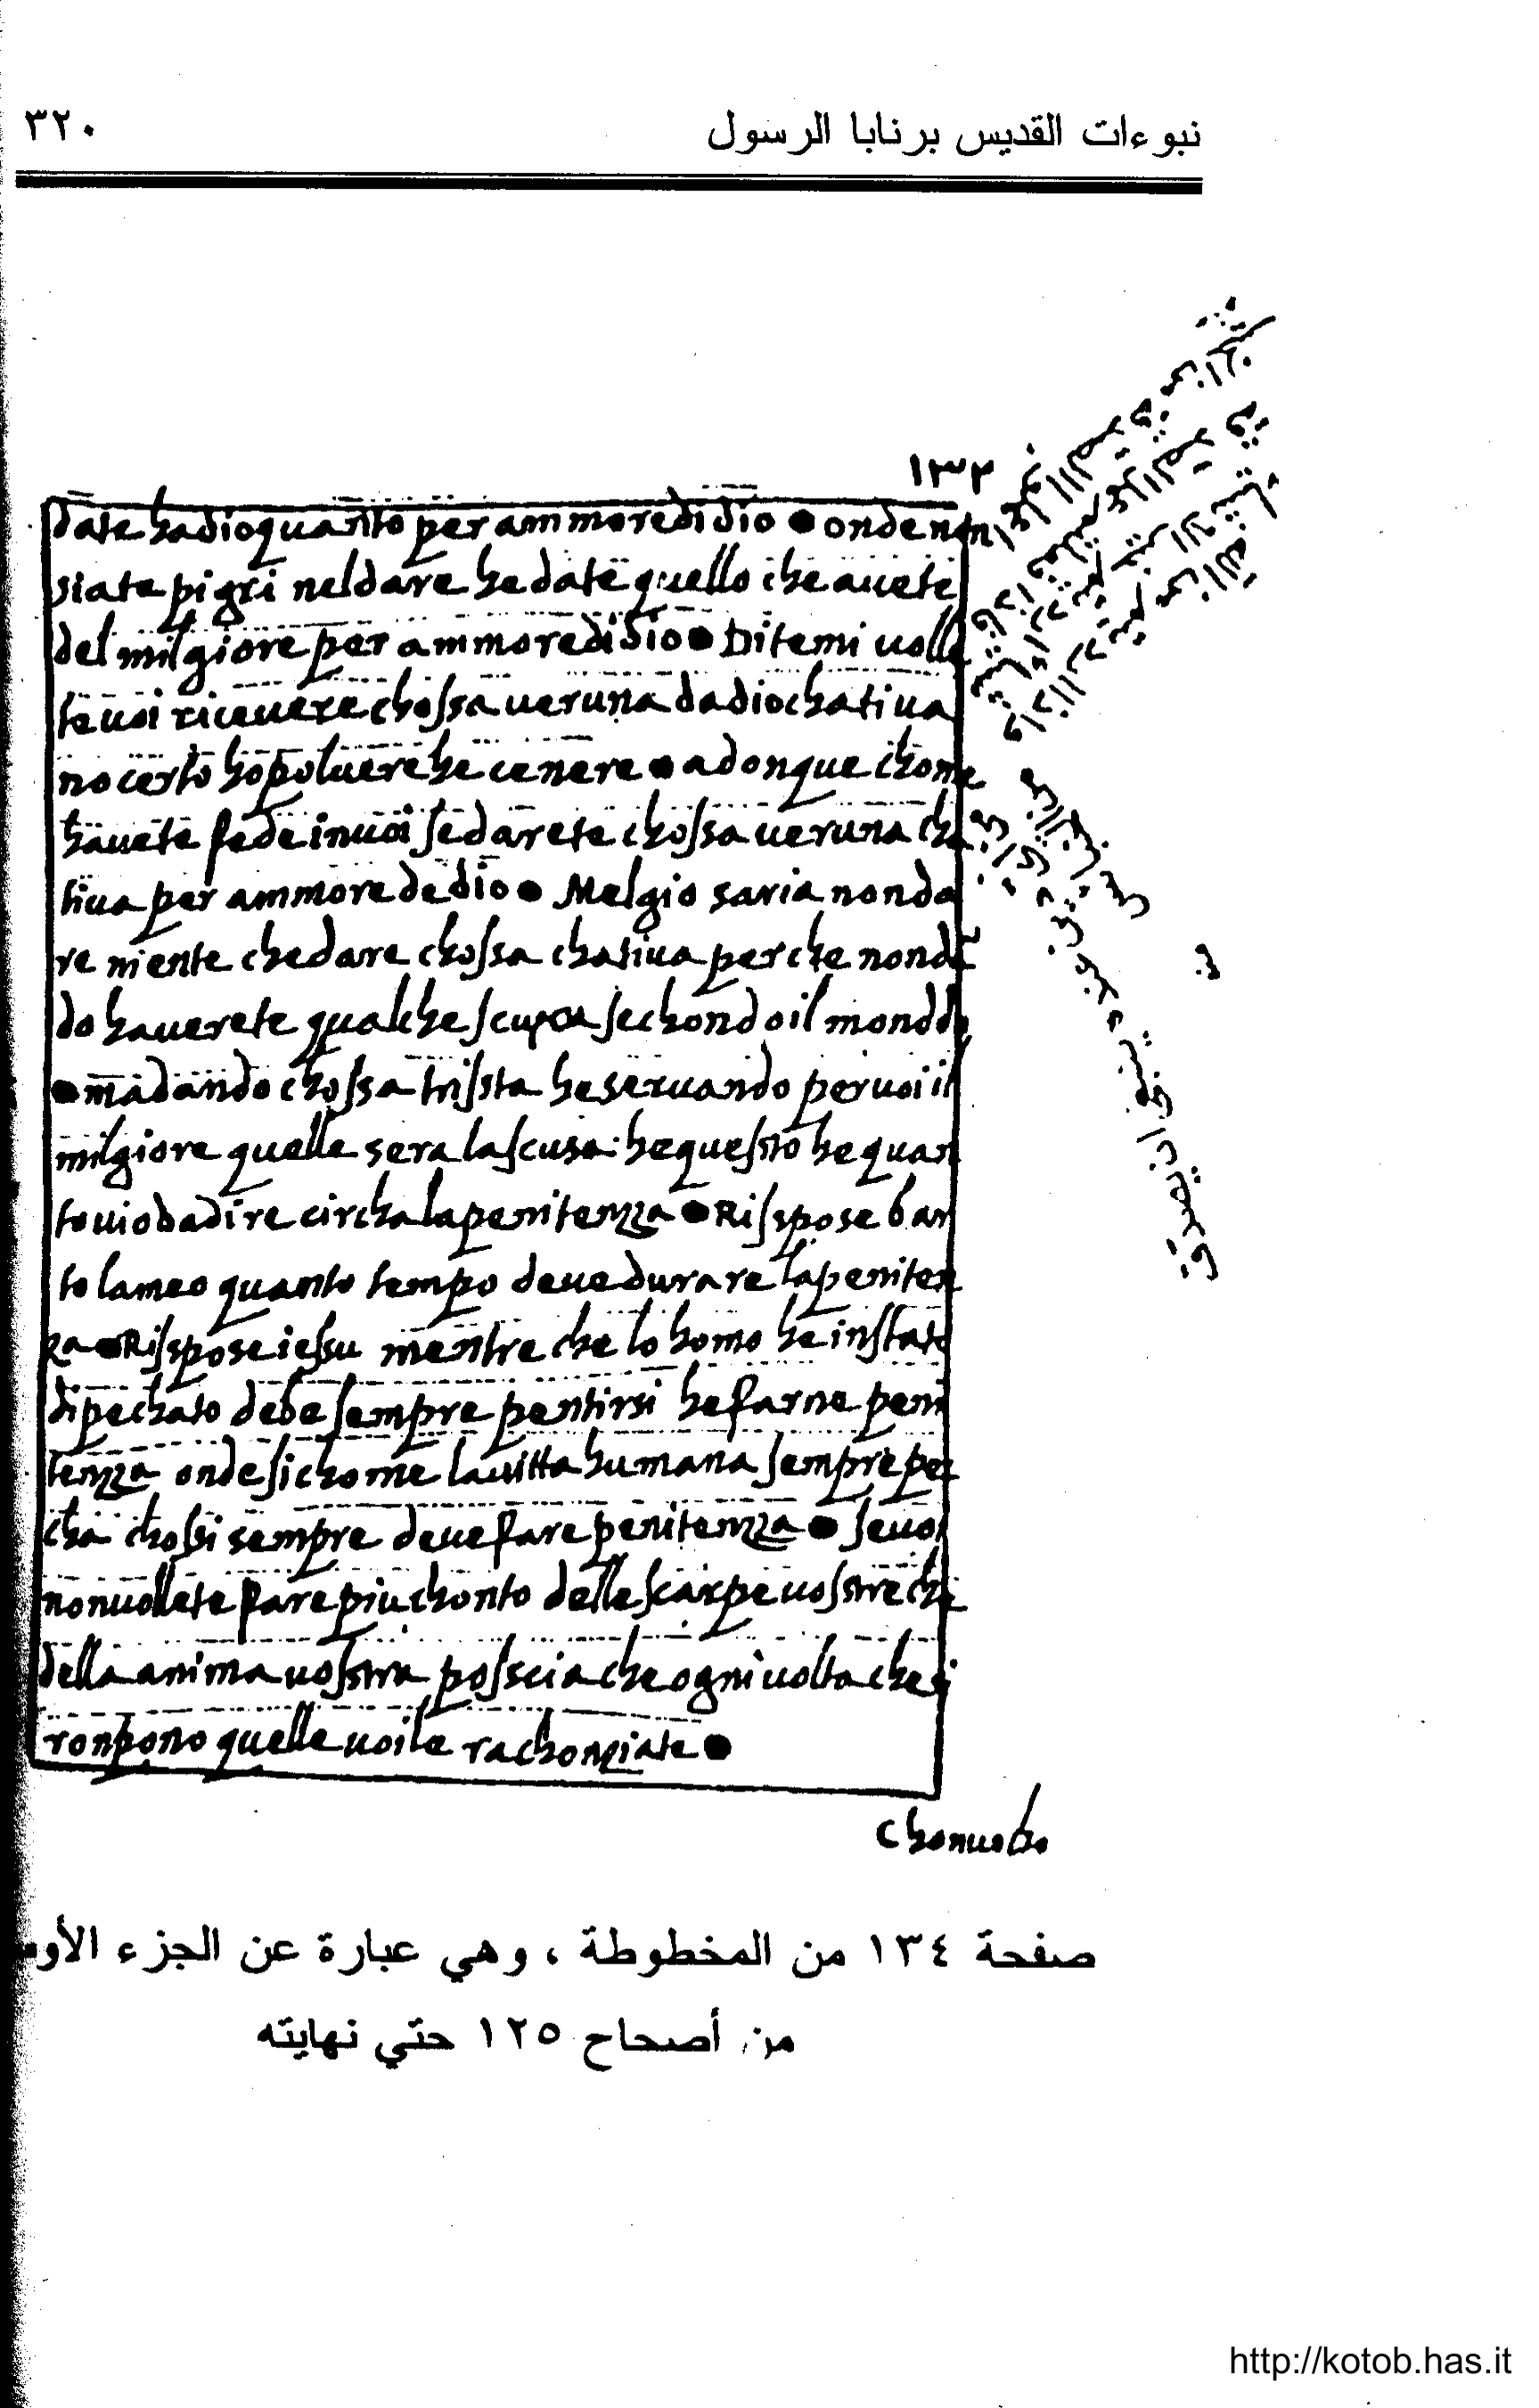 نبوءات القديس برنابا الرسول
٣٢٠
١٣٣
date ha dio quanto per ammore di dio ● onde non
siate pigri nel dare he date quello che avete
del milgiore per ammore di dio ● Ditemi volle
te voi ricevere chossa veruna da dio chativa
no certo ho polvere he cenere ● adonque chome
havete fede in voi se darete chossa veruna cha
tiva per ammore de dio ● Melgio saria non da
re niente che dare chossa chativa perche non dã
do haverete qualche scuxa sechondo il monddo
● ma dando chossa trissta he servando per voi il
milgiore quelle sera la scusa: he quessto he quan
to vi o da dire circha la penitenza ● Risspose bar
tolameo quanto tempo deve durare la peniten
za ● Risspose iessu mentre che lo homo he in stato
di pechato debe sempre pentirsi he farne peni
tenza onde sichome la vitta humana sempre pec
cha chossi sempre deve fare penitenza ● se voi
non vollete fare piu chonto delle scarpe vosstre che
della anima vosstra posscia che ogni volta che si
ronpono quelle voi le rachonziate ●
صفحة ١٣٤ من المخطوطة ، وهي عبارة عن الجزء
من أصحاح ١٢٥ حتي نهايته
http://kotob.has.it